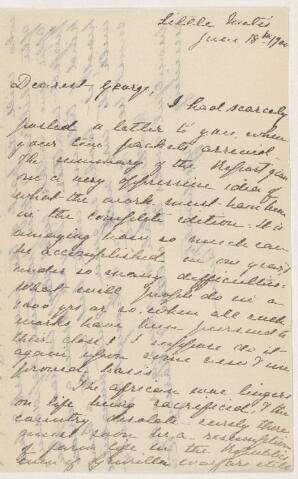 June 18th 1900
Dearest George,
I had scarcely
posted a letter to you when
your two packets arrived.
The summary of the Report gave
me a very oppressive idea of
what the work must have been
in the complete edition. It is
amazing how so much can
be accomplished in one year
under so many difficulties.
What will people do in a
100 yrs or so when all such
works have been pursued to
their close? I suppose do it
again upon some new & im
proved basis.
The African war lingers
on life being sacrificed & the
country desolate - surely there
must soon be a resumption
of farm life in the Republics
even if Guerilla warfare still